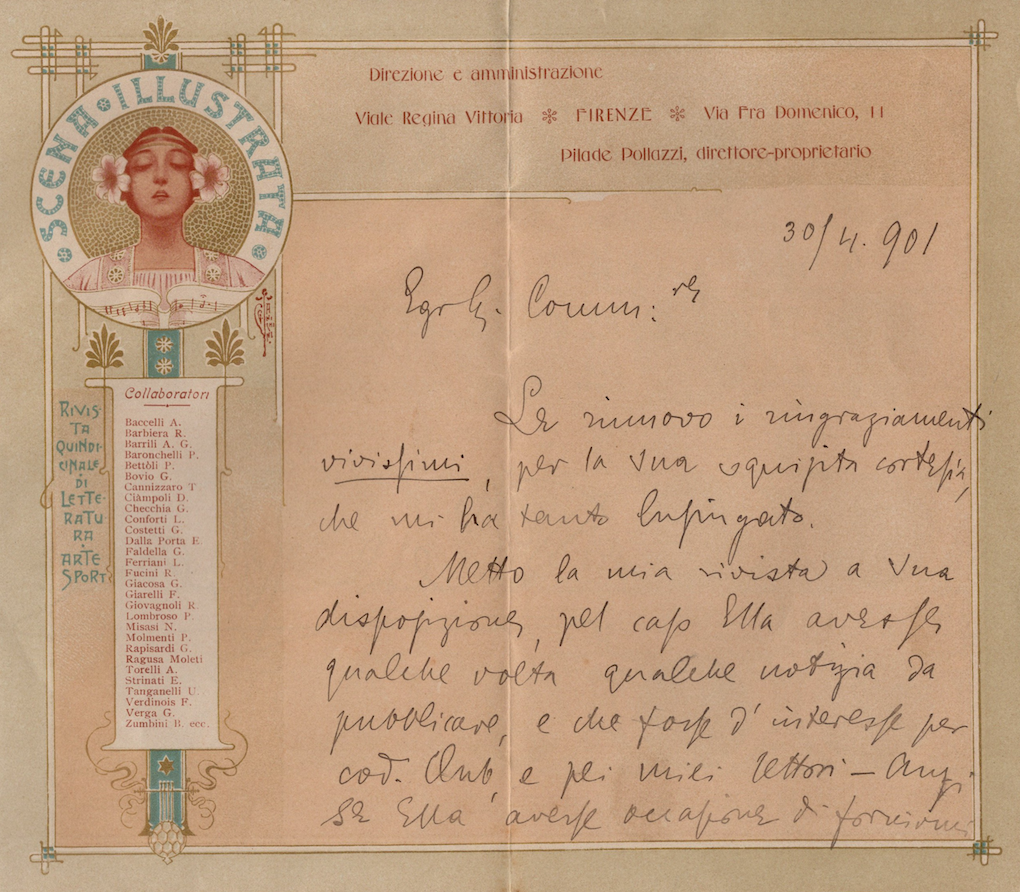 SCENA • ILLUSTRATA
Direzione e amministrazione
Viale Regina Vittoria ❇ FIRENZE ❇ Via Fra Domenico, 11
Pilade Pollazzi, direttore-proprietario
RIVIS-
TA
QUINDI-
CINALE
DI
LETTE-
RATU
RA •
ARTE
SPORT
Collaboratori
Baccelli A.
Barbiera R.
Barrili A. G.
Baronchelli P.
Bettòli P.
Bovio G.
Cannizzaro T
Ciàmpoli D.
Checchia G.
Conforti L.
Costetti G.
Dalla Porta E
Faldella G.
Ferriani L.
Fucini R.
Giacosa G.
Giarelli F.
Giovagnoli R.
Lombroso P.
Misasi N.
Molmenti P.
Rapisardi G.
Ragusa Moleti
Torelli A.
Strinati E.
Tanganelli U.
Verdinois F.
Verga G.
Zumbini B. ecc.
30/4. 901
Egr G. Comm:re
Le rinnovo i ringraziamenti
vivissimi, per la Sua squisita cortesia,
che mi ha tanto lusingato.
Metto la mia rivista a Sua
disposizione, pel caso Ella avesse
qualche volta qualche notizia da
pubblicare, e che fosse d'interesse per
cod. Club, e pei miei lettori — Anzi
se Ella avesse occasione di fornirmi